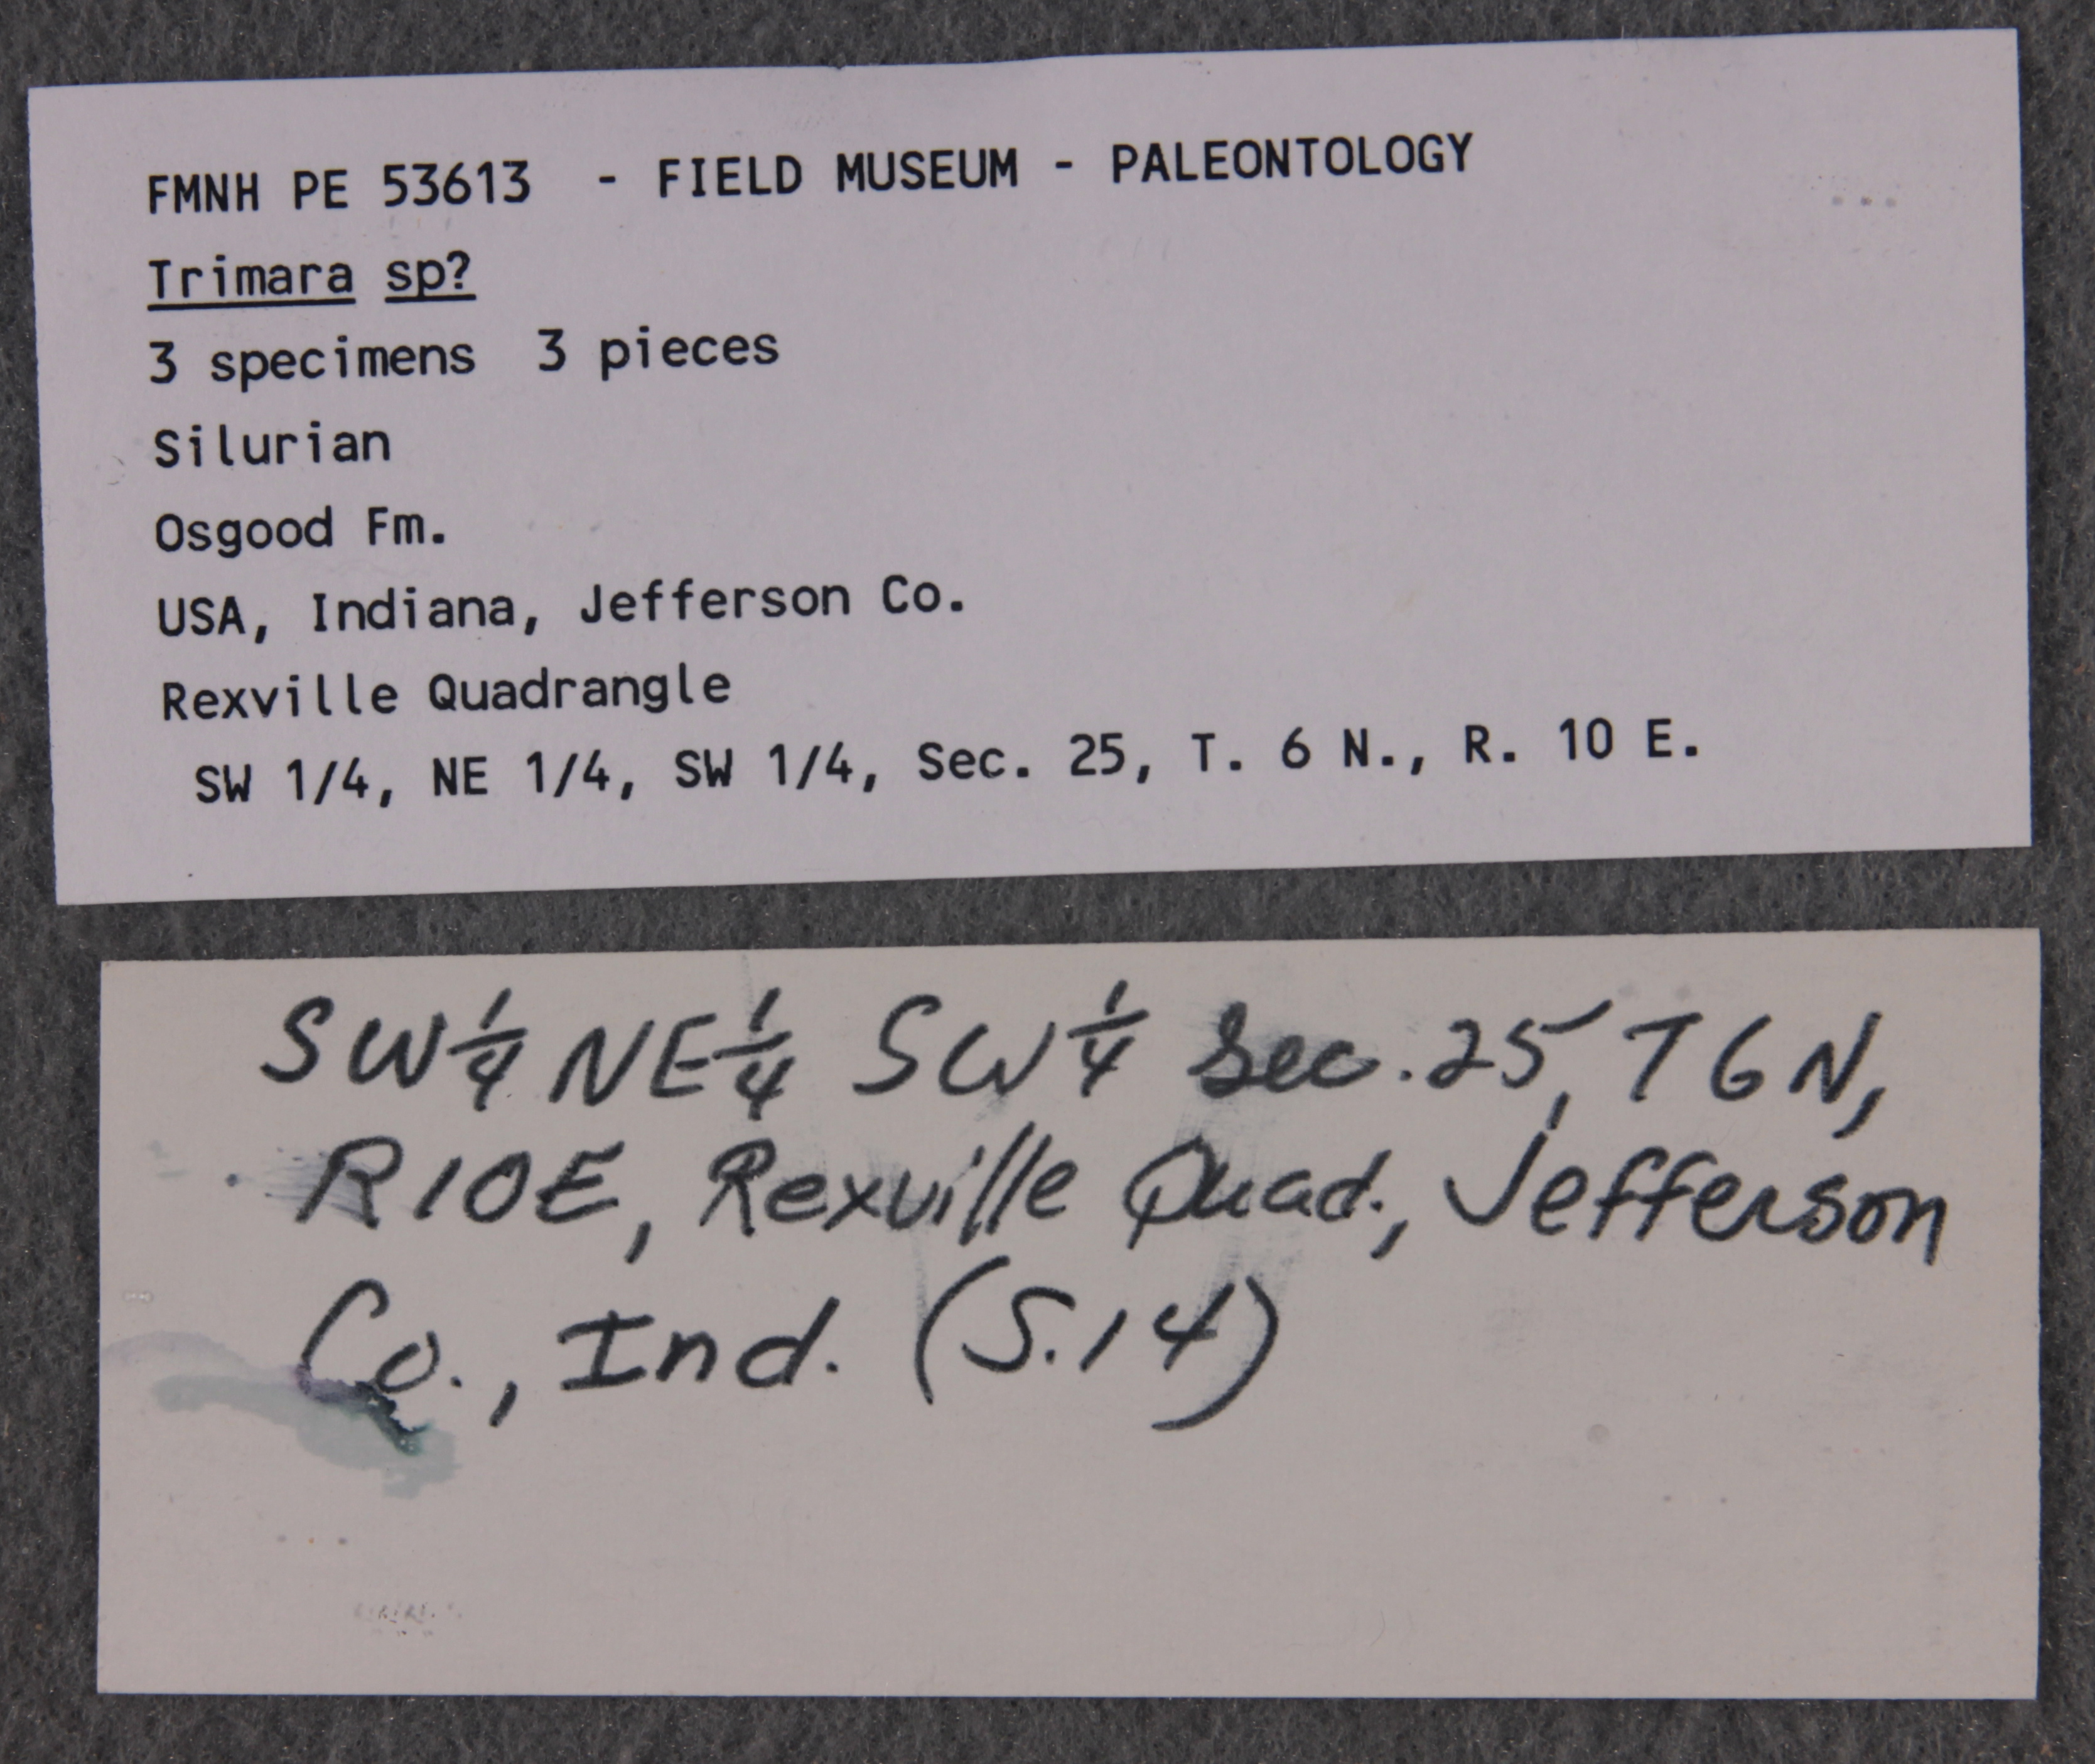 FMNH PE 53613 - FIELD MUSEUM - PALEONTOLOGY
Trimara sp?
3 specimens 3 pieces
Silurian
Osgood Fm.
USA, Indiana, Jefferson Co.
Rexville Quadrangle
SW 1/4, NE 1/4, SW 1/4, Sec. 25, T. 6 N., R. 10 E.
SW 1/4 NE 1/4 SW 1/4 Sec. 25, T6N,
R10E, Rexville Quad., Jefferson
Co., Ind. (S.14)